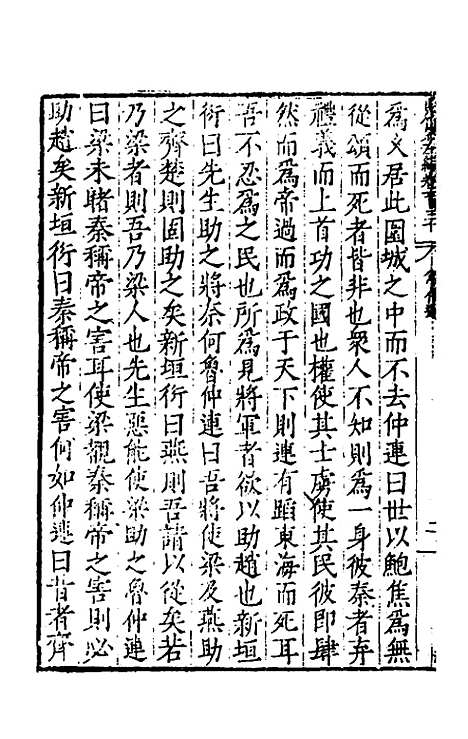 爲乂居此圍城之中而不去仲連曰世以鮑焦爲無
從頌而死者皆非也衆人不知則爲一身彼秦者弃
禮義而上首功之國也權使其士虜使其民彼即肆
然而爲帝過而爲政于天下則連有蹈東海而死耳
吾不忍爲之民也所爲見將軍者欲以助趙也新垣
衍曰先生助之將奈何魯仲連曰吾將使梁及燕助
之齊楚則固助之矣新垣衍曰燕則吾請以從矣若
乃梁者則吾乃梁人也先生惡能使梁助之魯仲連
曰梁未睹秦稱帝之害耳使梁覩秦稱帝之害則必
助趙矣新垣衍曰秦稱帝之害何如仲連曰昔者齊